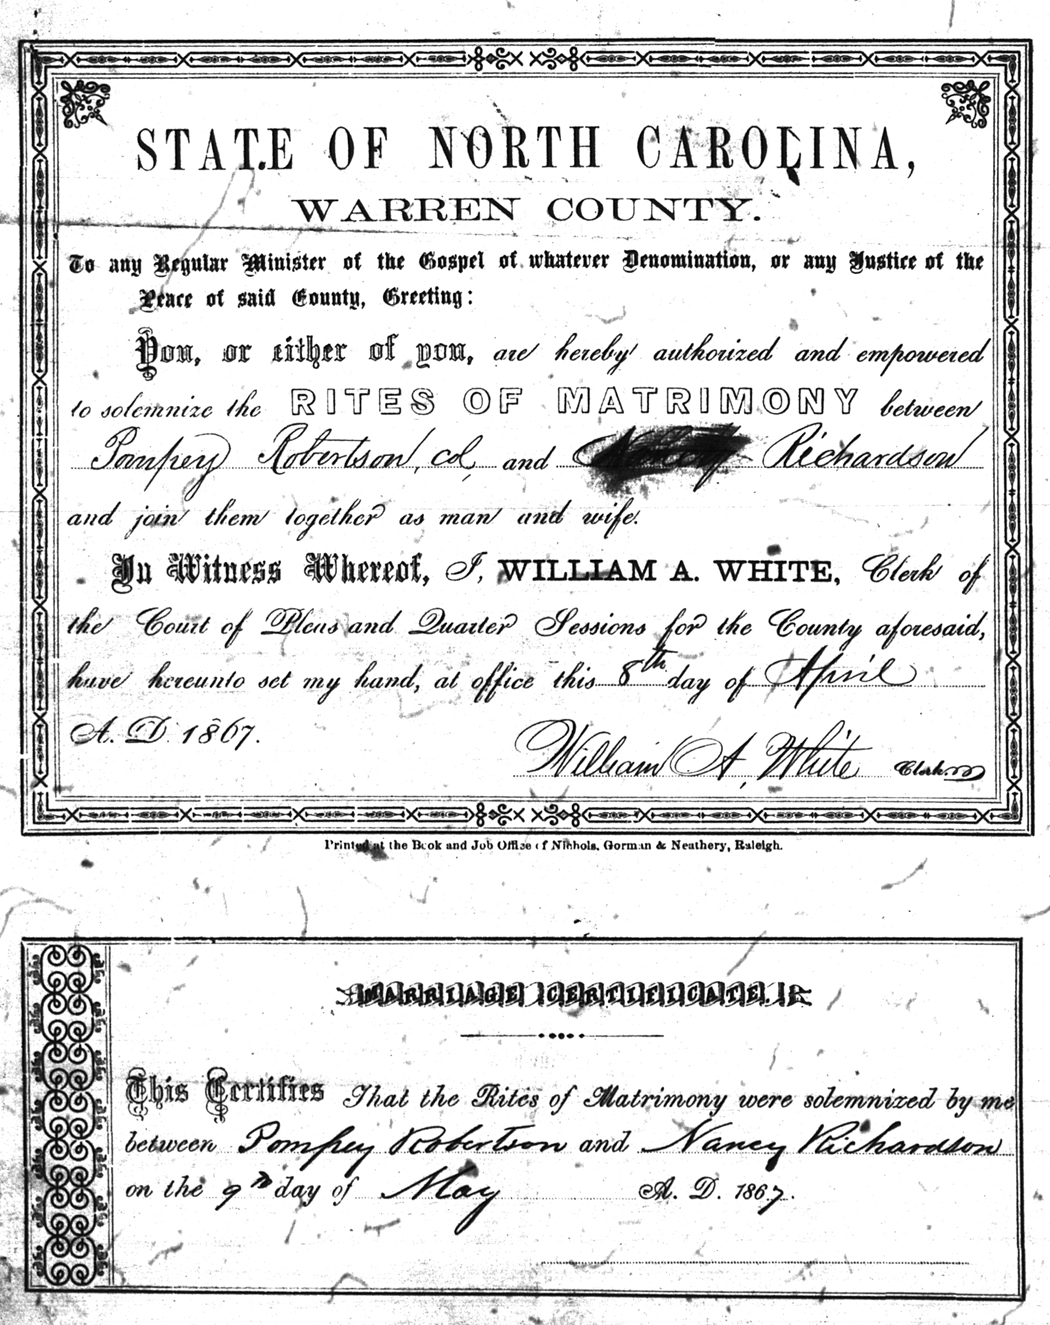 STATE OF NORTH CAROLINA,
WARREN COUNTY.
To any Regular Minister of the Gospel of whatever Denomination, or any Justice of the
Peace of said County, Greeting:
You, or either of you, are hereby authorized and empowered
to solemnize the RITES OF MATRIMONY between
Pompey Robertson, col, and Richardson
and join them together as man and wife.
In Witness Whereof, I, WILLIAM A. WHITE, Clerk of
the Court of Pleas and Quarter Sessions for the County aforesaid,
have hereunto set my hand, at office this 8th day of April
A. D. 1867.
William A. White Clerk
Printed at the Book and Job Office of Nichols, Gorman & Neathery, Raleigh.
MARRIAGE CERTIFICATE.
This Certifies That the Rites of Matrimony were solemnized by me
between Pompey Robertson and Nancy Richardson
on the 9th day of May A. D. 1867.